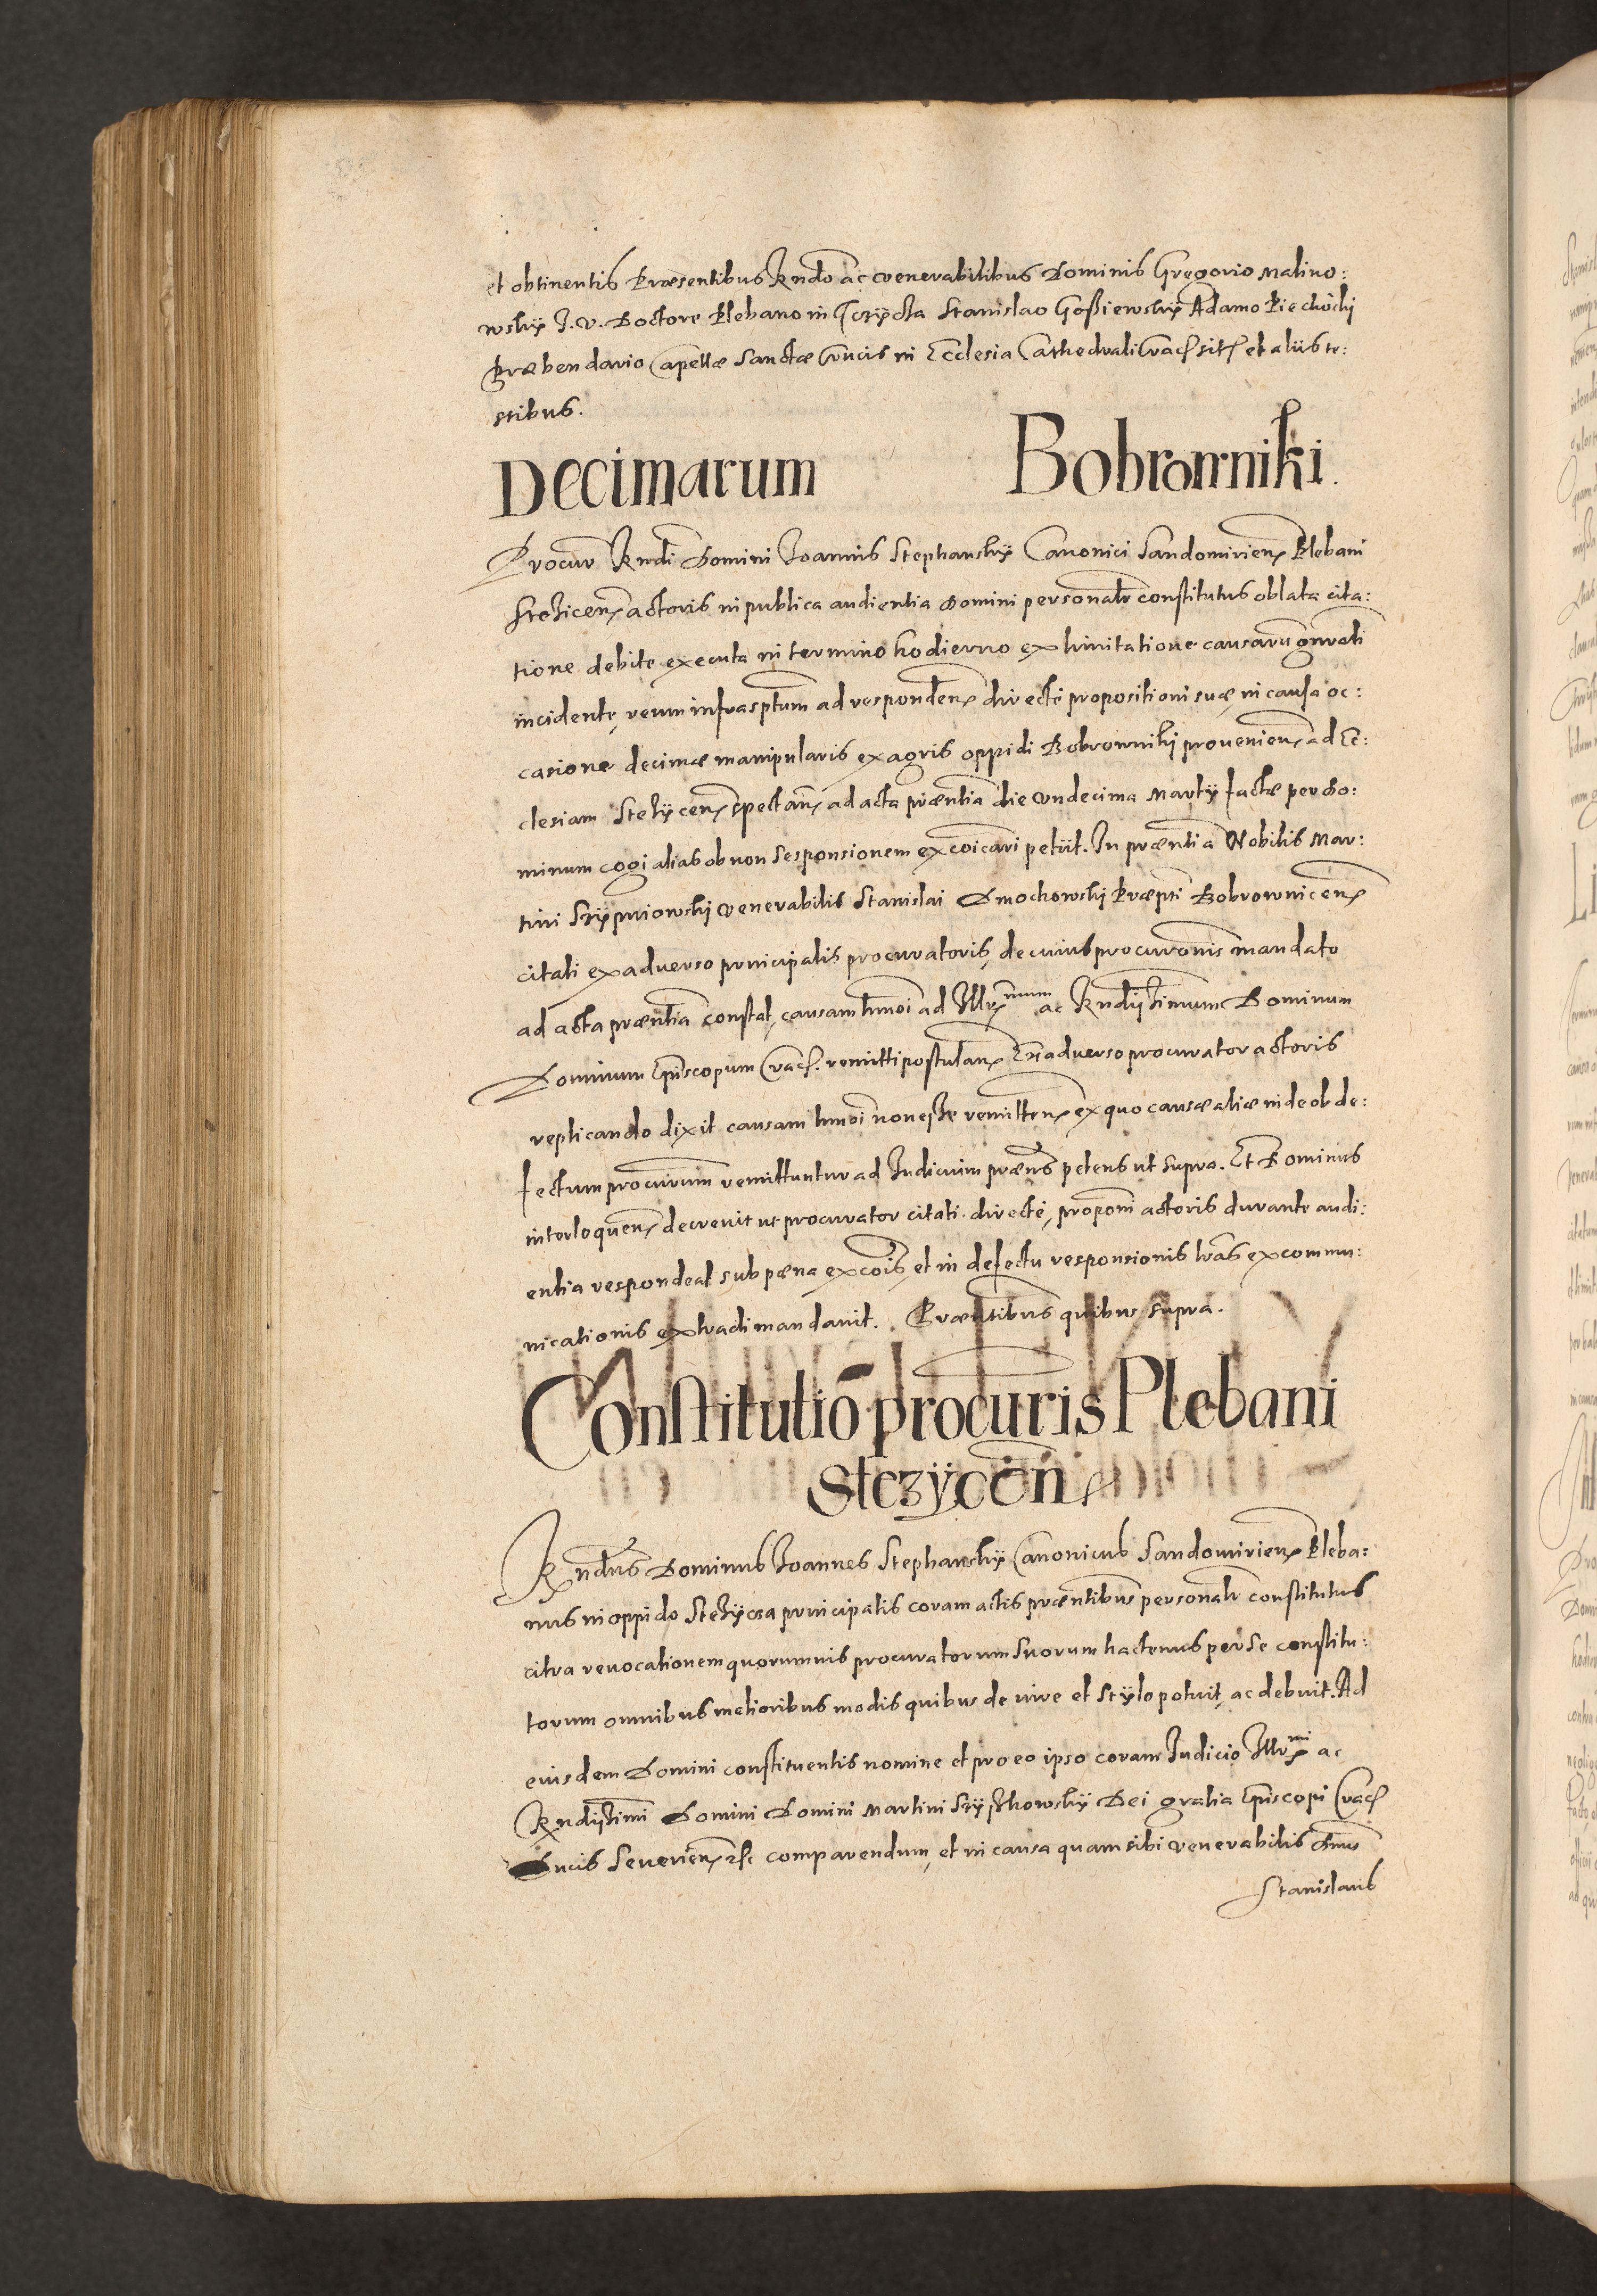 et obtinentis Præsentibus Rndo ac venerabilibus Dominis Gregorio Malino:
wskÿ J. V. Doctore Plebano in Stanislao Goßiewskÿ Adamo Piechocki
Præbendario Capellæ Sanctæ Crucis in Ecclesia Cathedrali Crac. sit. et aliis te:
stibus.
Decimarum Bobrowniki.
Procur Rndi Domini Joannis Stephanskÿ Canonici Sandomirien Plebani
Stezicen actoris in publica audientia Domini personalr constitutus oblata cita:
tione debite executa in termino hodierno ex limitatione causaru gnrali
incidente, reum infrasptum ad responden directe propositioni suæ in causa oc:
casione decimæ manipularis ex agris oppidi Bobrowniki prouenien ad Ec:
clesiam Stezÿcen spectan ad acta præntia die vndecima Martÿ factæ per do:
minum cogi alias ob non responsionem excoicari petiit. In præntia Nobilis Mar:
tini venerabilis Stanislai Dmochowski Præpti Bobrownicen
citati ex aduerso principalis procuratoris, de cuius procuronis mandato
ad acta præntia constat, causam hmoi ad Illr mum ac Rndÿssimum Dominum
Dominum Episcopum Crac. remitti postulan Ex aduerso procurator actoris
replicando dixit causam hmoi non esse remitten ex quo causæ aliæ inde ob de:
fectum procurum remittuntur ad Judicium præns petens ut supra. Et Dominus
interloquen decreuit ut procurator citati directe, proponi actoris durante audi:
entia respondeat sub pæna excois, et in defectu responsionis lras excommu:
nicationis extradi mandauit. Præntibus quibus supra.
Constitutio procuris Plebani
Stezÿcen
Rndus Dominus Joannes Stephanskÿ Canonicus Sandomirien Pleba:
nus in oppido Stezÿcza principalis coram actis præntibus personalr constitutus
citra reuocationem quorumuis procuratorum suorum hactenus per se constitu:
torum omnibus melioribus modis quibus de iure et stÿlo potuit, ac debuit. Ad
eiusdem Domini constituentis nomine et pro eo ipso coram Judicio Illr mi ac
Rndissimi Domini Domini Martini Szÿszkowskÿ Dei gratia Episcopi Crac
Ducis Seuerien etc comparendum, et in causa quam sibi venerabilis Dnus
Stanislaus